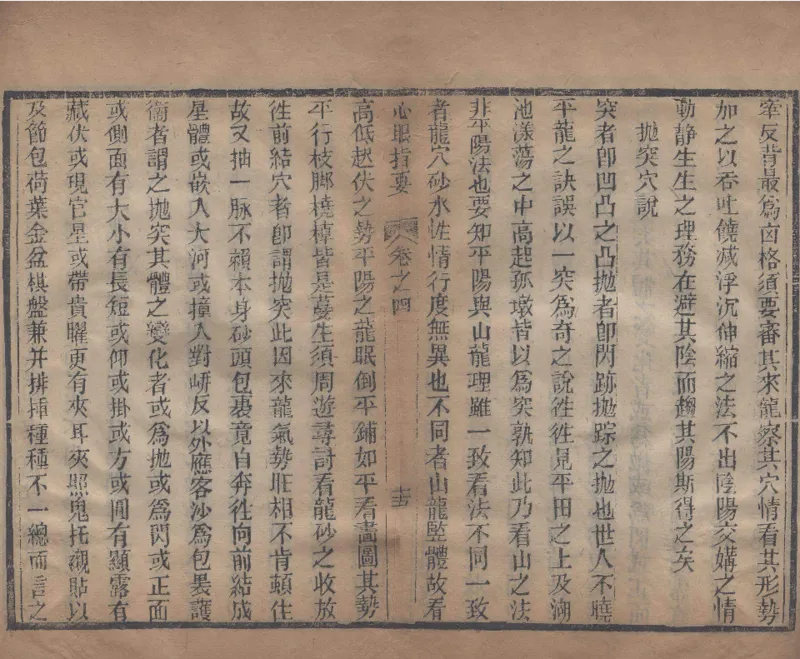 牽反背最爲凶格須要審其來龍察其穴情看其形勢
加之以吞吐饒減浮沉伸縮之法不出陰陽交媾之情
動静生生之理務在避其陰而趨其陽斯得之矣
拋突穴說
突者卽凹凸之凸拋者卽閃跡拋踪之拋也世人不曉
平龍之訣誤以一突爲奇之說徃徃見平田之上及湖
池漾蕩之中高起孤墩皆以爲突孰知此乃看山之法
非平陽法也要知平陽與山龍理雖一致看法不同一致
者龍穴砂水性情行度無異也不同者山龍豎體故看
心眼指要 卷之四 十三
高低起伏之勢平陽之龍眠倒平鋪如平看畫圖其勢
平行枝脚橈棹皆是蔓生須周遊尋討看龍砂之收放
徃前結穴者卽謂拋突此因來龍氣勢旺相不肯頓住
故又抽一脉不賴本身砂頭包裹竟自奔徃向前結成
星體或嵌入大河或撞入對峙反以外應客沙爲包裹護
衞者謂之拋突其體之變化者或爲拋或爲閃或正面
或側面有大小有長短或仰或掛或方或圓有顯露有
藏伏或現官星或帶貴曜更有夾耳夾照鬼托襯貼以
及節包荷葉金盆棋盤兼并排揷種種不一總而言之